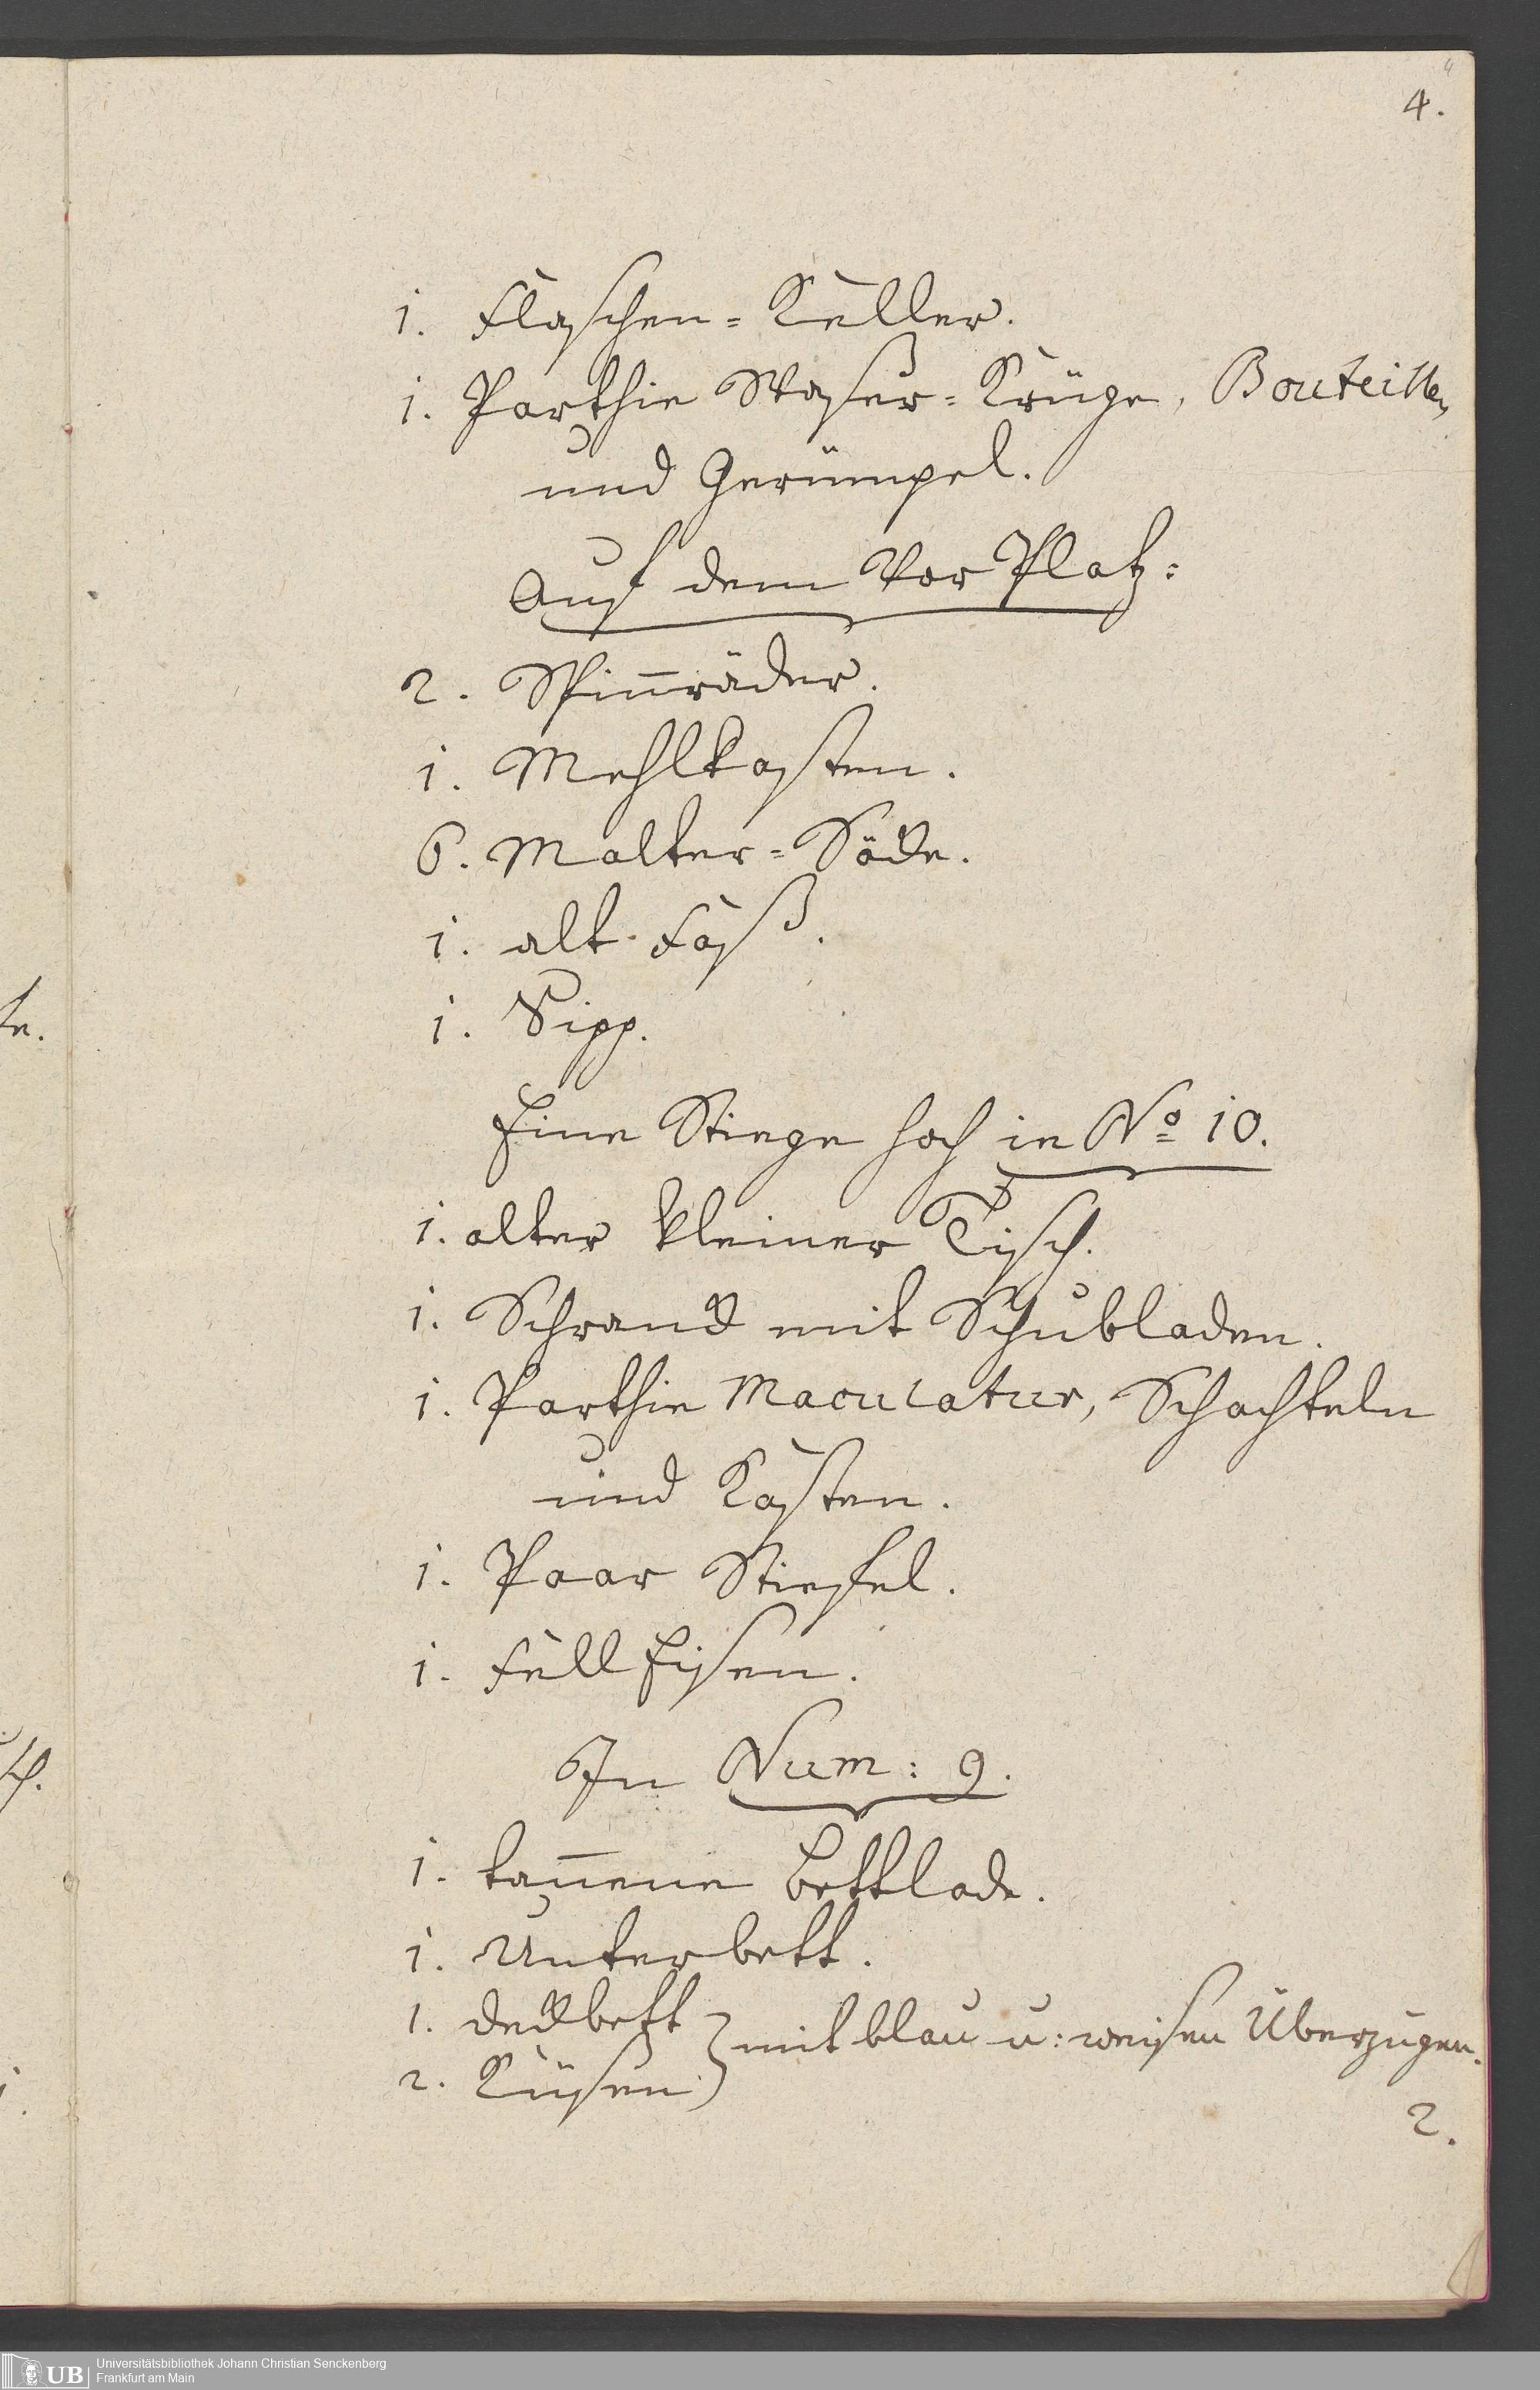 4
4.
1. Flaschen-Keller.
1. Parthie Wasser-Krüge, Bouteillen
und Gerümpel.
Auf dem Vor Platz:
2. Spin̅räder.
1. Mehlkasten.
6. Malter-Säcke.
1. alt Faß.
1. Sipp.
Eine Stiege hoch in No 10.
1. alter kleiner Tisch.
1. Schranck mit Schubladen.
1. Parthie Maculatur, Schachteln
und Kasten.
1. Paar Stiefel.
1. Fell Eisen.
In Num: 9.
1. tan̅ene Bettlade.
1. Unterbett.
1. Deckbett
2. Küssen } mit blau u: weisen Überzügen.
2.
te.
sch.
UB
Universitätsbibliothek Johann Christian Senckenberg
Frankfurt am Main